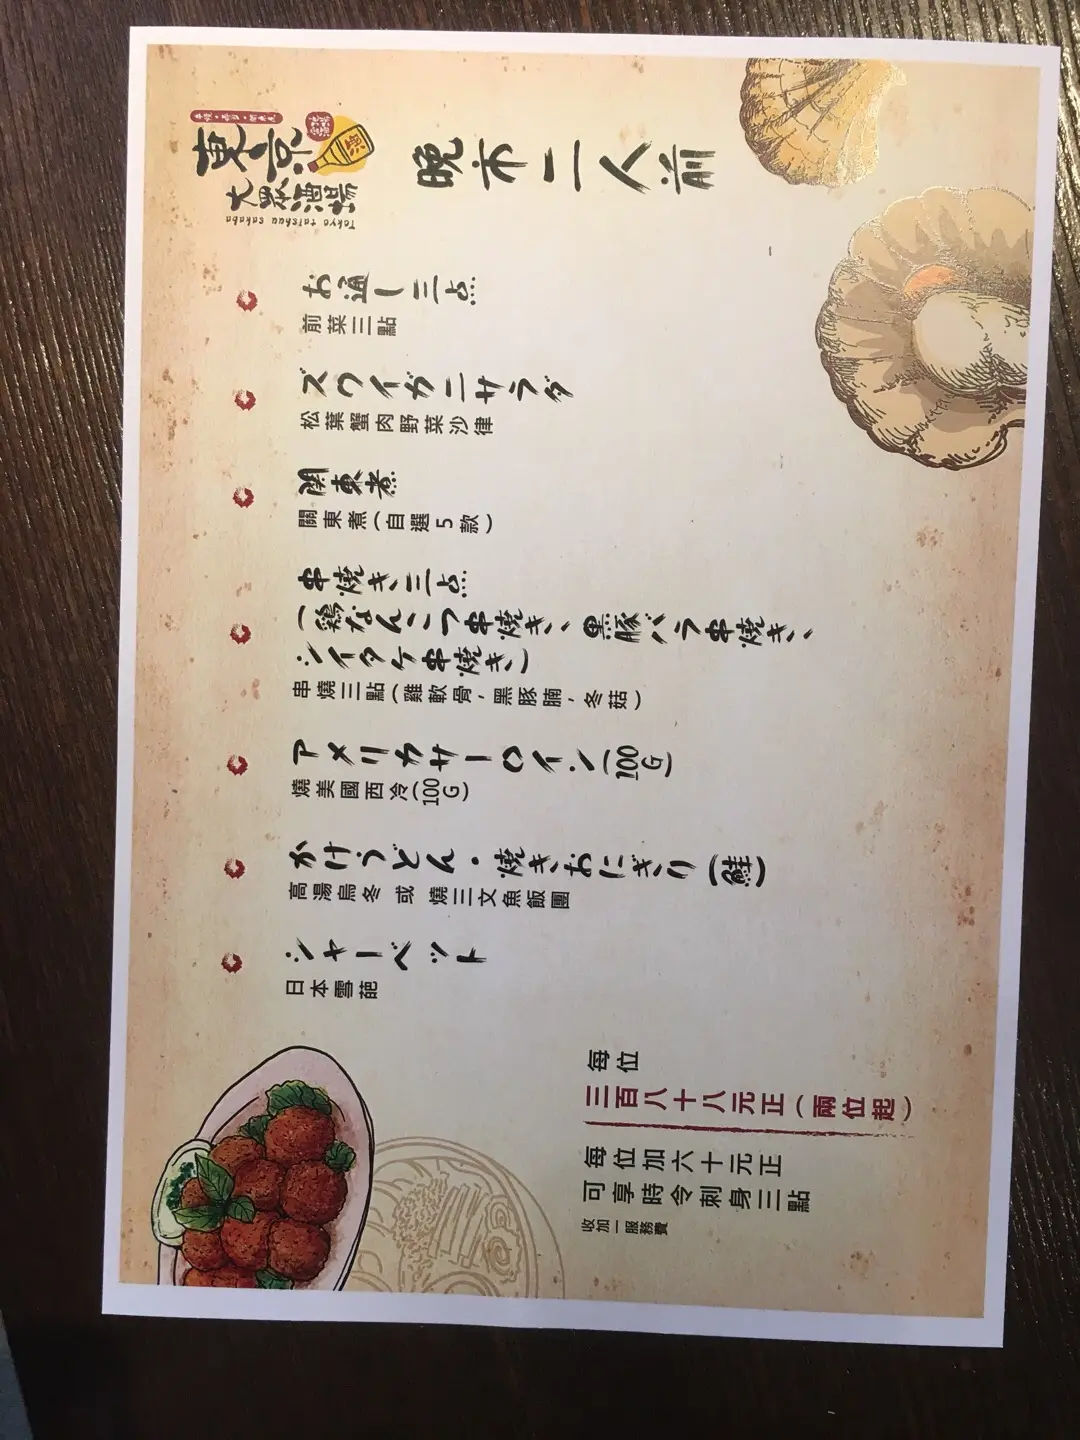 東京
大眾酒場
Tokyo taishuu sakaba
晩市二人前
お通し三点
前菜三點
ズワイガニサラダ
松葉蟹肉野菜沙律
関東煮
關東煮(自選5款)
串焼き三点
(鶏なんこつ串焼き、黒豚バラ串焼き、
シイタケ串焼き)
串燒三點(雞軟骨,黑豚腩,冬菇)
アメリカサーロイン(100G)
燒美國西冷(100G)
かけうどん・焼きおにぎり(鮭)
高湯烏冬 或 燒三文魚飯團
シャーベット
日本雪葩
每位
三百八十八元正(兩位起)
每位加六十元正
可享時令刺身三點
收加一服務費